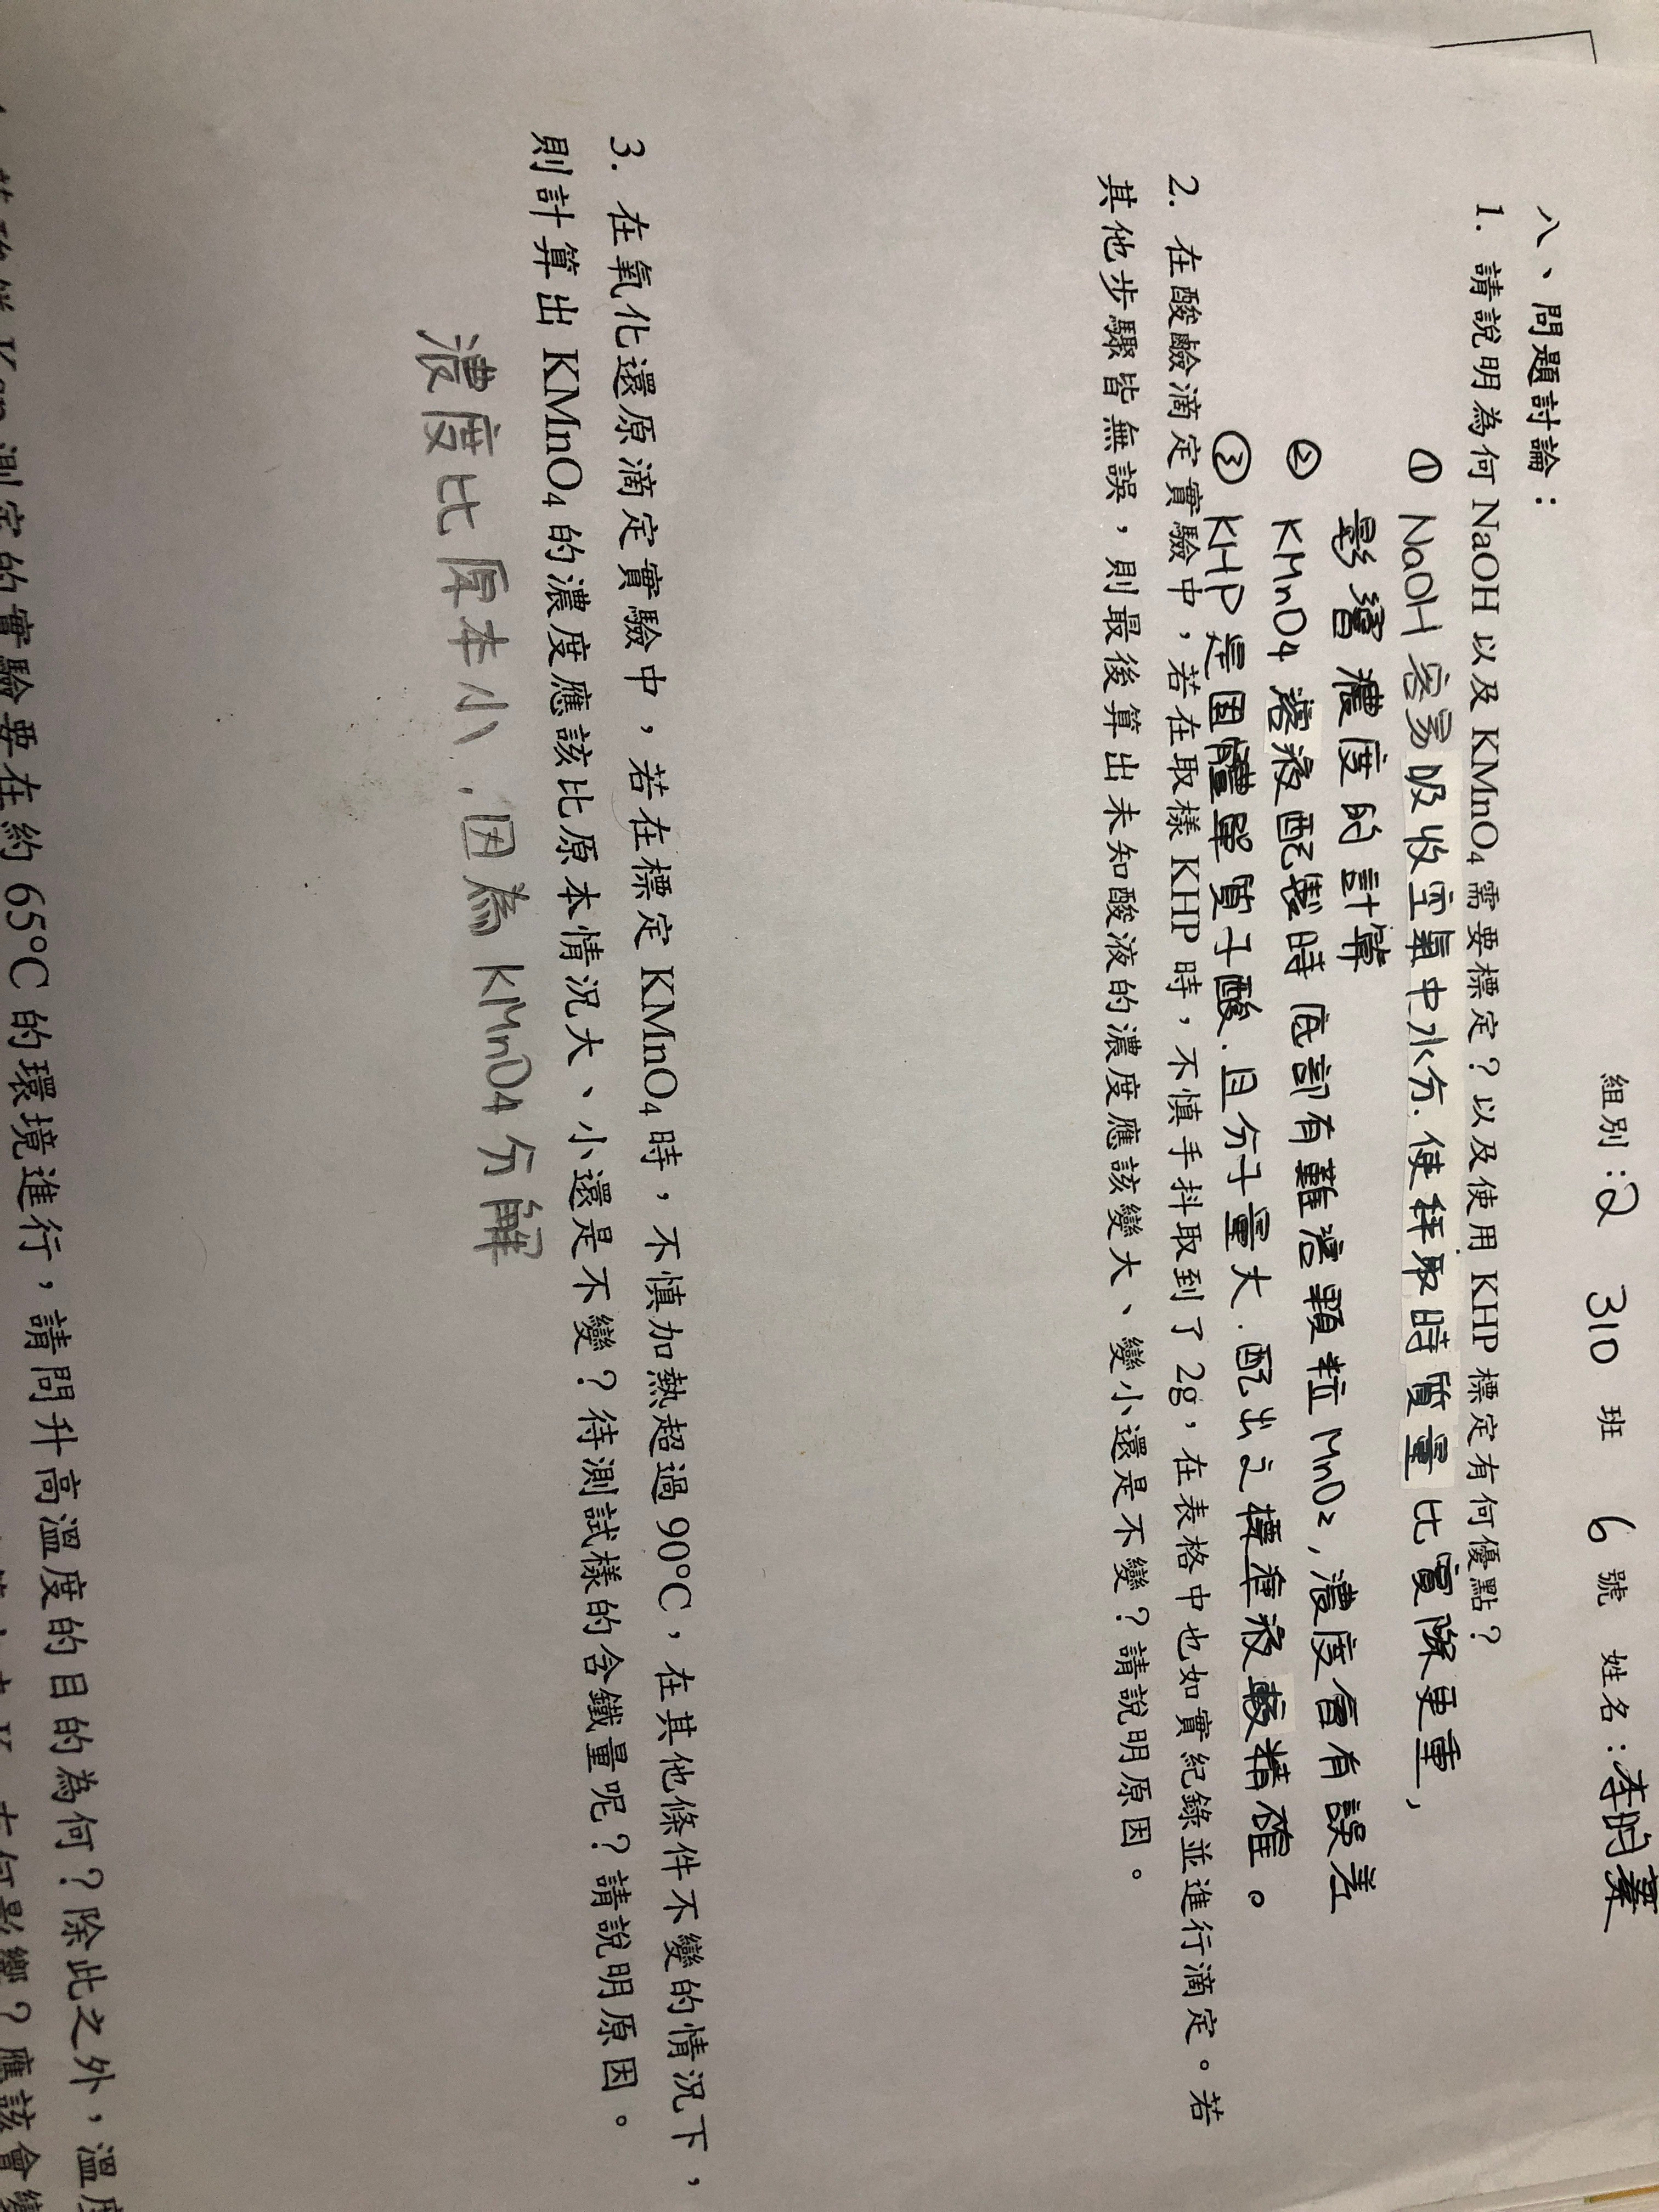 組別:2 310 班 6 號 姓名:李昀蓁
八、問題討論：
1. 請說明為何 NaOH 以及 KMnO4 需要標定？以及使用 KHP 標定有何優點？
① NaOH 容易吸收空氣中水分.使秤取時質量比實際更重,
影響濃度的計算
② KMnO4 溶液配製時底部有難溶顆粒 MnO2,濃度會有誤差
③ KHP 是固體單質子酸.且分子量大.配出之標準液較精確。
2. 在酸鹼滴定實驗中，若在取樣 KHP 時，不慎手抖取到了 2g，在表格中也如實紀錄並進行滴定。若
其他步驟皆無誤，則最後算出未知酸液的濃度應該變大、變小還是不變？請說明原因。
3. 在氧化還原滴定實驗中，若在標定 KMnO4 時，不慎加熱超過 90°C，在其他條件不變的情況下，
則計算出 KMnO4 的濃度應該比原本情況大、小還是不變？待測試樣的含鐵量呢？請說明原因。
濃度比原本小.因為 KMnO4 分解
測定的實驗要在約 65°C 的環境進行，請問升高溫度的目的為何？除此之外，溫度
有何影響？應該會